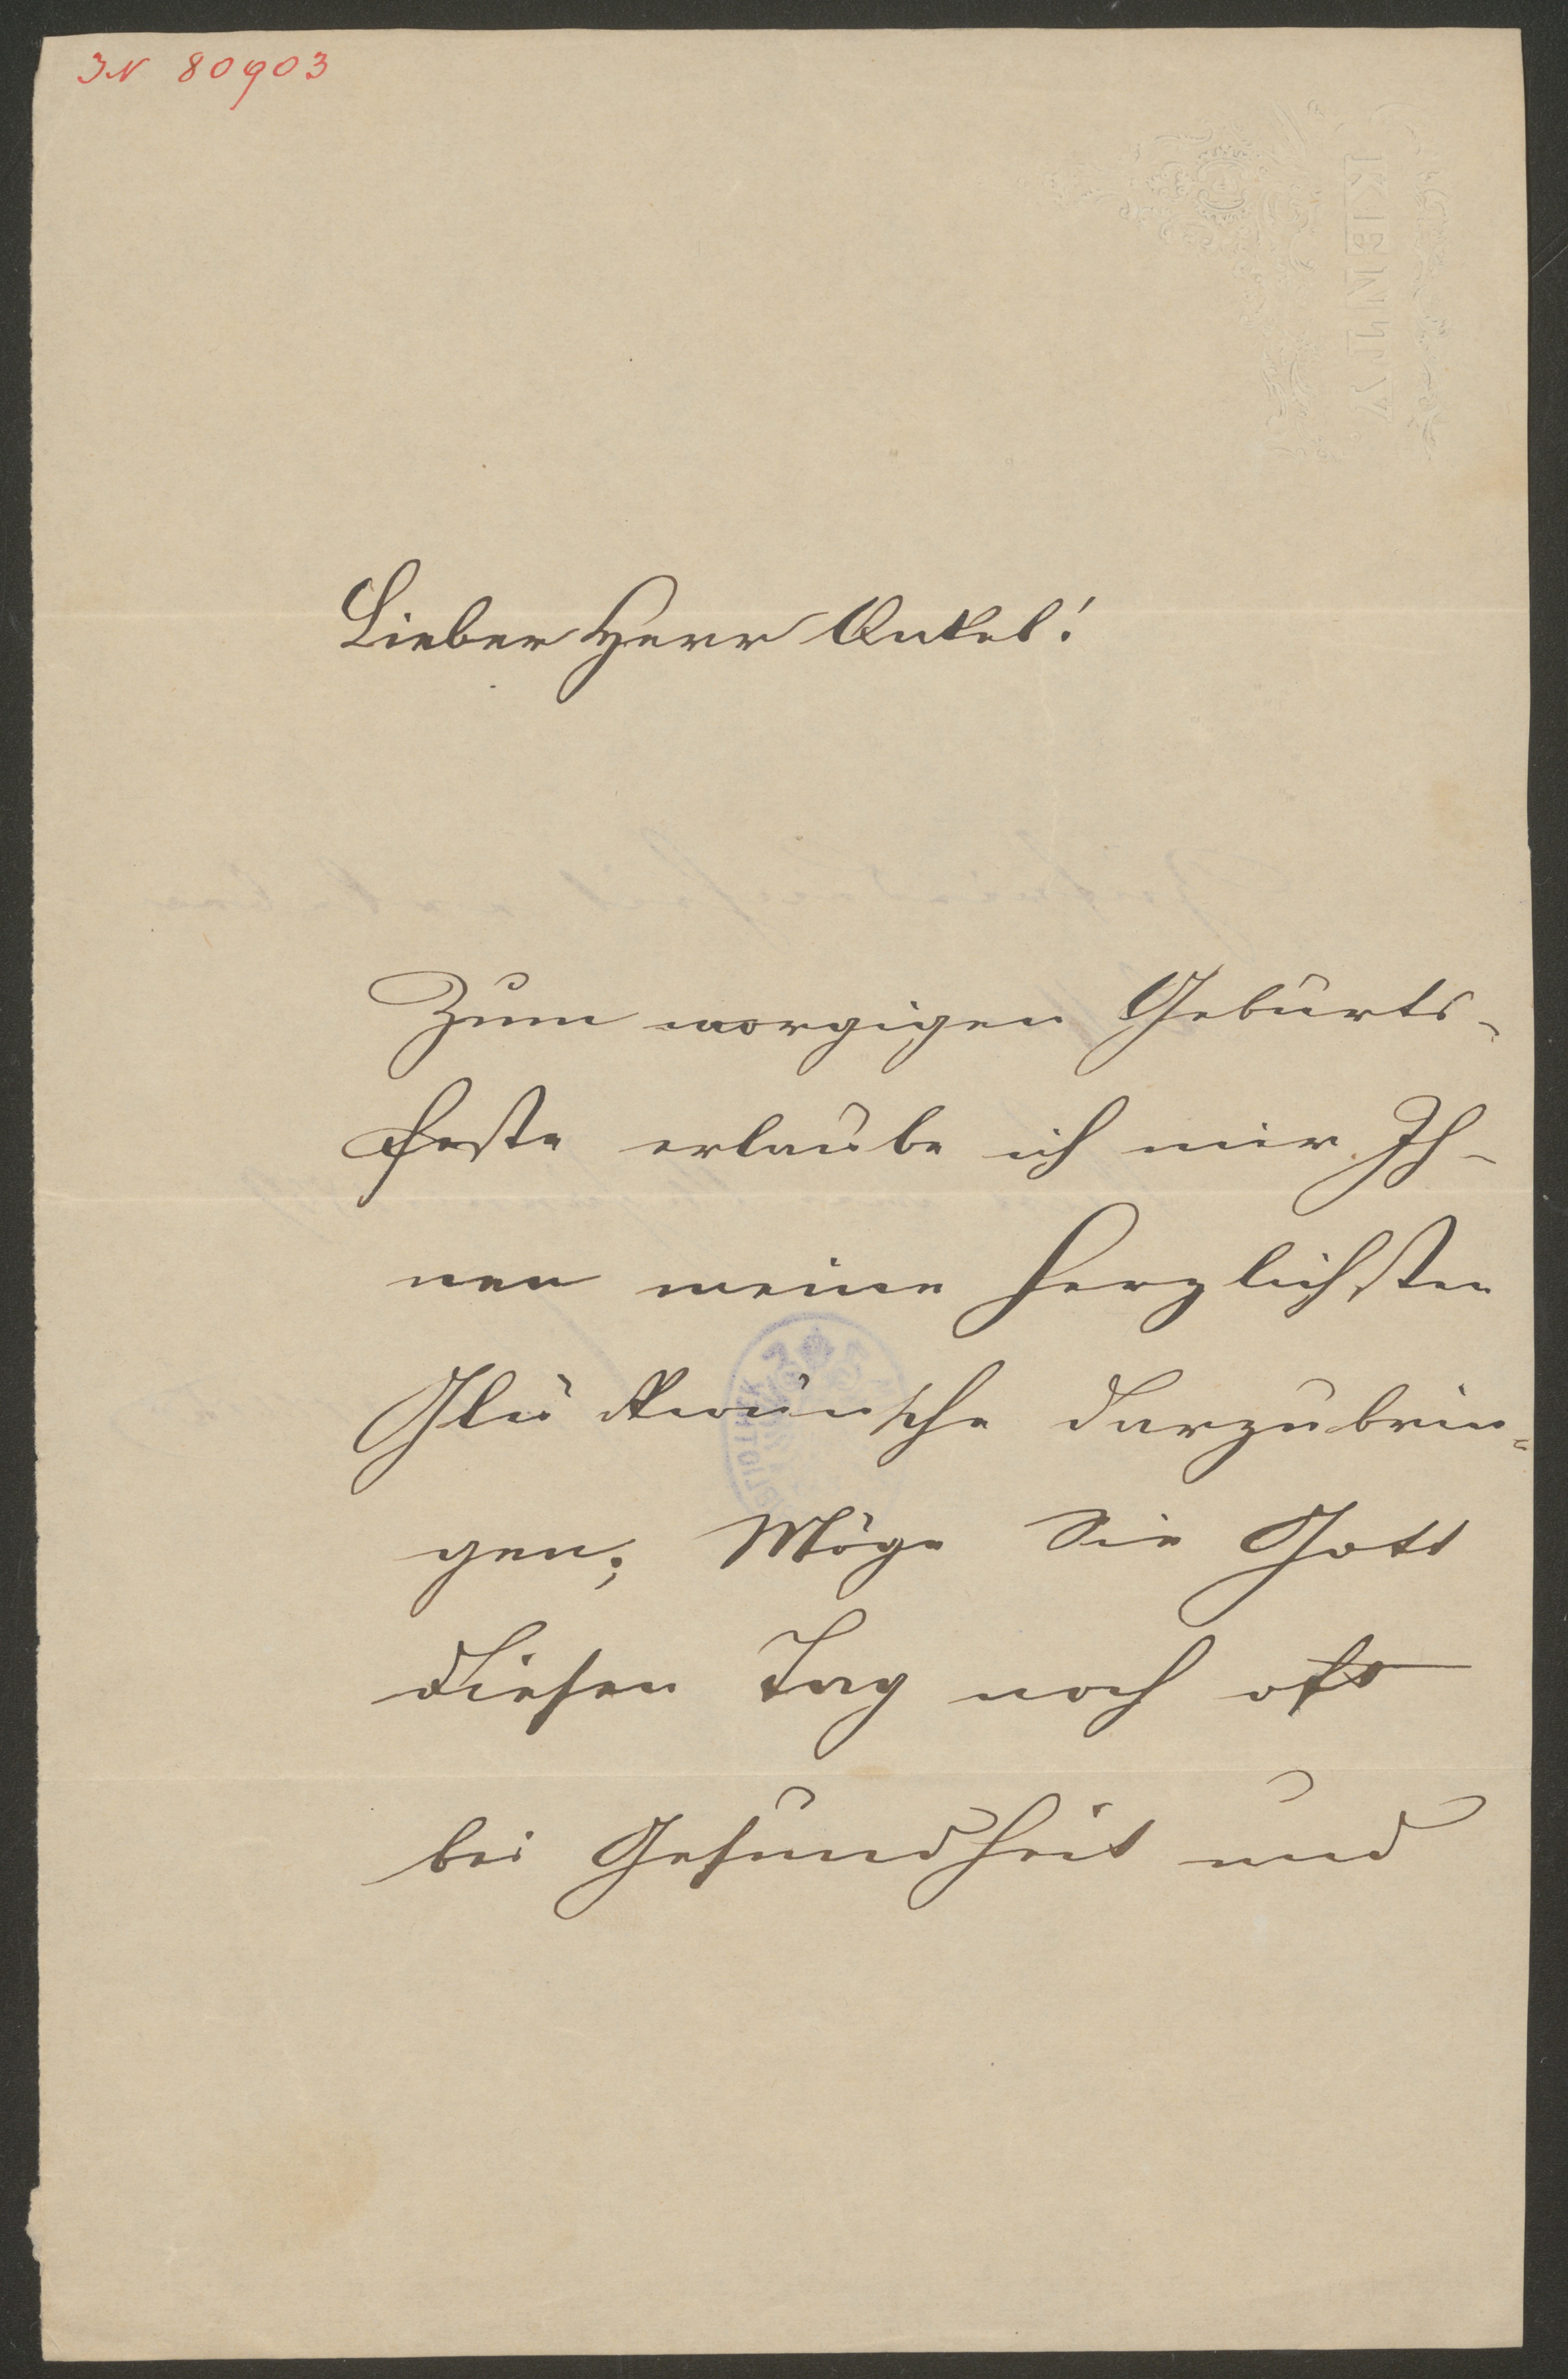 IN 80903
KENTY.
Lieber Herr Onkel!
Zum morgigen Geburts-
feste erlaube ich mir Ih-
nen meine herzlichsten
Glückwünsche darzubrin=
gen; Möge Sie Gott
diesen Tag noch oft
bei Gesundheit und